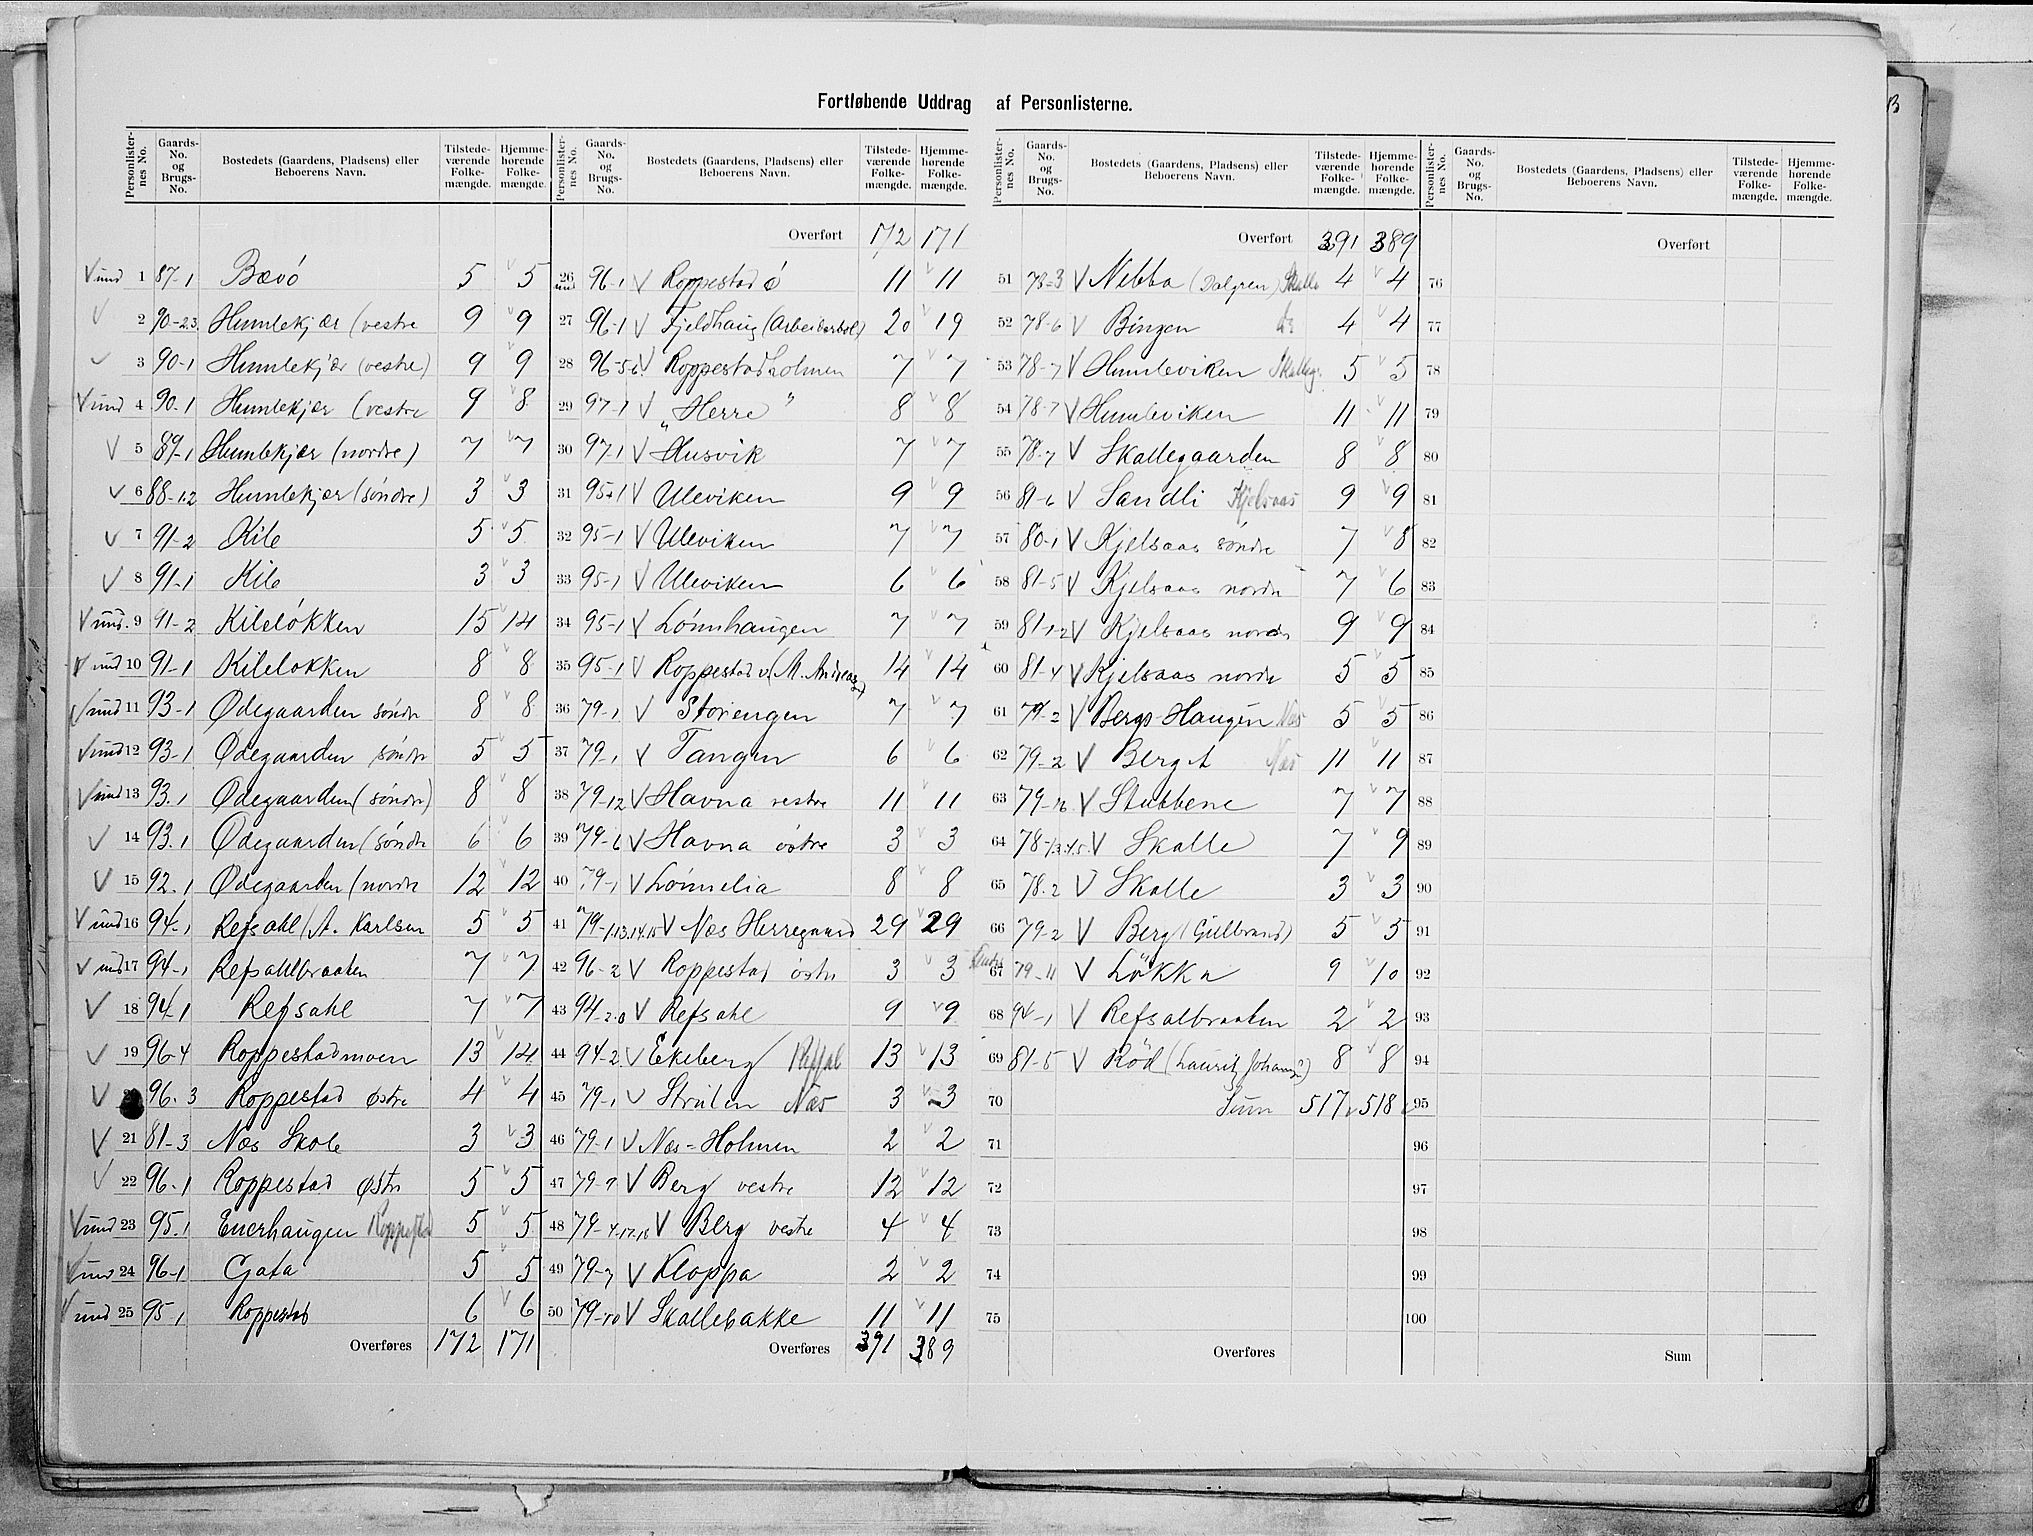 Fortløbende Uddrag af Personlisterne.
Personlister-nes No. | Gaards-No. og Brugs-No. | Bostedets (Gaardens, Pladsens) eller Beboerens Navn. | Tilstede-værende Folke-mængde. | Hjemme-hørende Folke-mængde.
V und 1 87-1 Bævö 5 5
V 2 90-2.3. Humlekjær (vestre 9 9
V 3 90-1 Humlekjær (vestre) 9 9
V und 4 90.1 Humlekjær (vestre 9 8
V 5 89-1 Humlekjær (nordre) 7 7
V 6 88-1.2 Humlekjær (söndre) 3 3
V 7 91-2 Kile 5 5
V 8 91-1 Kile 3 3
V und. 9 91-2 Kilelökken 15 14
V und 10 91-1 Kilelokken 8 8
V und 11 93-1 Ødegaarden söndr 8 8
V und 12 93-1 Ødegaarden söndr 5 5
V und 13 93.1 Ødegaarden (söndr) 8 8
V 14 93.1 Ødegaarden (söndr 6 6
V 15 92.1 Ødegaarden (nordre 12 12
V und 16 94-1 Refsahl (A. Karlsen 5 5
V und 17 94-1 Refsahlbraaten 7 7
V 18 94-1 Refsahl 7 7
V 19 96-4 Roppestadmoen 13 14
V 96.3 Roppestad østre 4 4
V 21 81-3 Næs Skole 3 3
V 22 96-1 Roppestad østr 5 5
V und 23 95.1 Enerhaugen Roppestad 5 5
V und 24 96-1 Gata 5 5
V und 25 95-1 Roppestad 6 6
Overføres 172 171
Personlister-nes No. | Gaards-No. og Brugs-No. | Bostedets (Gaardens, Pladsens) eller Beboerens Navn. | Tilstede-værende Folke-mængde. | Hjemme-hørende Folke-mængde.
Overført 172 171
26 und 96-1 V Roppestad ö 11 11
27 96-1 V Fjeldhaug (Arbeiderbol) 20 19
28 96-5-6 V Roppestadholmen 7 7
29 97-1 V „Herre" 8 8
30 97-1 V Husvik 7 7
31 95-1 V Uleviken 9 9
32 95-1 V Uleviken 7 7
33 95-1 V Uleviken 6 6
34 95-1 V Lönnhaugen 7 7
35 95-1 V Roppestad v. (M. Andreas) 14 14
36 79-1 V Storengen 7 7
37 79-1 V Tangen 6 6
38 79-12 V Havna vestre 11 11
39 79-6 V Havna östre 3 3
40 79-1 V Lönnelia 8 8
41 79-1.13.14.15 V Næs Herregaard 29 29
42 96-2 V Roppestad östr 3 3
43 94-2.0 V Refsahl 9 9
44 94-2 V Ekeberg Refsal 13 13
45 79-1 V Strulen Næs 3 3
46 79-1 V Næs-Holmen 2 2
47 79-9 V Berg vestre 12 12
48 79-4.17.18 V Berg vestre 4 4
49 79-7 V Kloppa 2 2
50 79-10 V Skallebakke 11 11
Overføres 391 389
Personlister-nes No. | Gaards-No. og Brugs-No. | Bostedets (Gaardens, Pladsens) eller Beboerens Navn. | Tilstede-værende Folke-mængde. | Hjemme-hørende Folke-mængde.
Overført 391 389
51 78-3 V Nebba (Dalgren) Skalle 4 4
52 78-6 V Bingen do 4 4
53 78-7 V Humleviken Skalleg. 5 5
54 78-7 V Humleviken 11 11
55 78-7 V Skallegaarden 8 8
56 81-6 V Sandli Kjelsaas 9 9
57 80-1 V Kjelsaas söndre 7 8
58 81-5 V Kjelsaas nordr 7 6
59 81-1-2 V Kjelsaas nordr 9 9
60 81-4 V Kjelsaas nordre 5 5
61 79-2 V Bergs-Haugen Næs 5 5
62 79-2 V Berget Næs 11 11
63 79-16 V Stubbene 7 7
64 78-1.3.4.5. V Skalle 7 9
65 78.2 V Skalle 3 3
66 79-2 V Berg (Gulbrand) 5 5
67 79-11 V Lökka 9 10
68 94-1 V Refsalbraaten 2 2
69 81-5 V Röd (Lauritz Johans.) 8 8
70 Sum 517 518
71
72
73
74
75
Overføres
Personlister-nes No. | Gaards-No. og Brugs-No. | Bostedets (Gaardens, Pladsens) eller Beboerens Navn. | Tilstede-værende Folke-mængde. | Hjemme-hørende Folke-mængde.
Overført
76
77
78
79
80
81
82
83
84
85
86
87
88
89
90
91
92
93
94
95
96
97
98
99
100
Sum